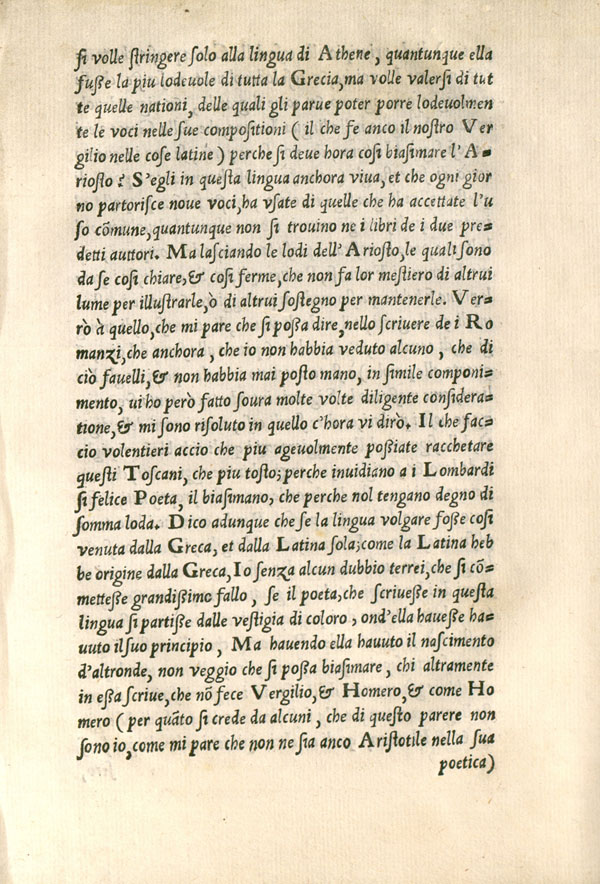 ſi volle ſtringere ſolo alla lingua di Athene, quantunque ella
fuße la piu lodeuole di tutta la Grecia, ma volle valerſi di tut
te quelle nationi, delle quali gli parue poter porre lodeuolmen
te le voci nelle ſue compoſitioni ( il che fe anco il noſtro Ver
gilio nelle coſe latine ) perche ſi deue hora coſi biaſimare l'A=
rioſto ? S'egli in queſta lingua anchora viua, et che ogni gior
no partoriſce noue voci, ha vſate di quelle che ha accettate l'u
ſo cõmune, quantunque non ſi trouino ne i libri de i due pre=
detti auttori. Ma laſciando le lodi dell'Arioſto, le quali ſono
da ſe coſi chiare, & coſi ferme, che non fa lor meſtiero di altrui
lume per illuſtrarle, ò di altrui ſoſtegno per mantenerle. Ver=
rò à quello, che mi pare che ſi poßa dire, nello ſcriuere de i Ro
manzi, che anchora, che io non habbia veduto alcuno, che di
ciò fauelli, & non habbia mai poſto mano, in ſimile componi=
mento, ui ho però fatto ſoura molte volte diligente conſidera=
tione, & mi ſono riſoluto in quello c'hora vi dirò. Il che fac=
cio volentieri accio che piu ageuolmente poßiate racchetare
queſti Toſcani, che piu toſto; perche inuidiano a i Lombardi
ſi felice Poeta, il biaſimano, che perche nol tengano degno di
ſomma loda. Dico adunque che ſe la lingua volgare foße coſi
venuta dalla Greca, et dalla Latina ſola; come la Latina heb
be origine dalla Greca, Io ſenza alcun dubbio terrei, che ſi cõ=
metteße grandißimo fallo, ſe il poeta, che ſcriueße in queſta
lingua ſi partiße dalle veſtigia di coloro, ond'ella haueße ha=
uuto il ſuo principio, Ma hauendo ella hauuto il naſcimento
d'altronde, non veggio che ſi poßa biaſimare, chi altramente
in eßa ſcriue, che nõ fece Vergilio, & Homero, & come Ho
mero ( per quãto ſi crede da alcuni, che di queſto parere non
ſono io, come mi pare che non ne ſia anco Ariſtotile nella ſua
poetica)